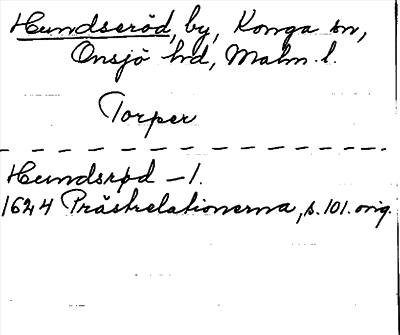 Hundseröd, by, Konga sn,
Onsjö hd, Malm. l.
Torper
Hundsrød - 1.
1624 Prästrelationerna, s. 101. orig.